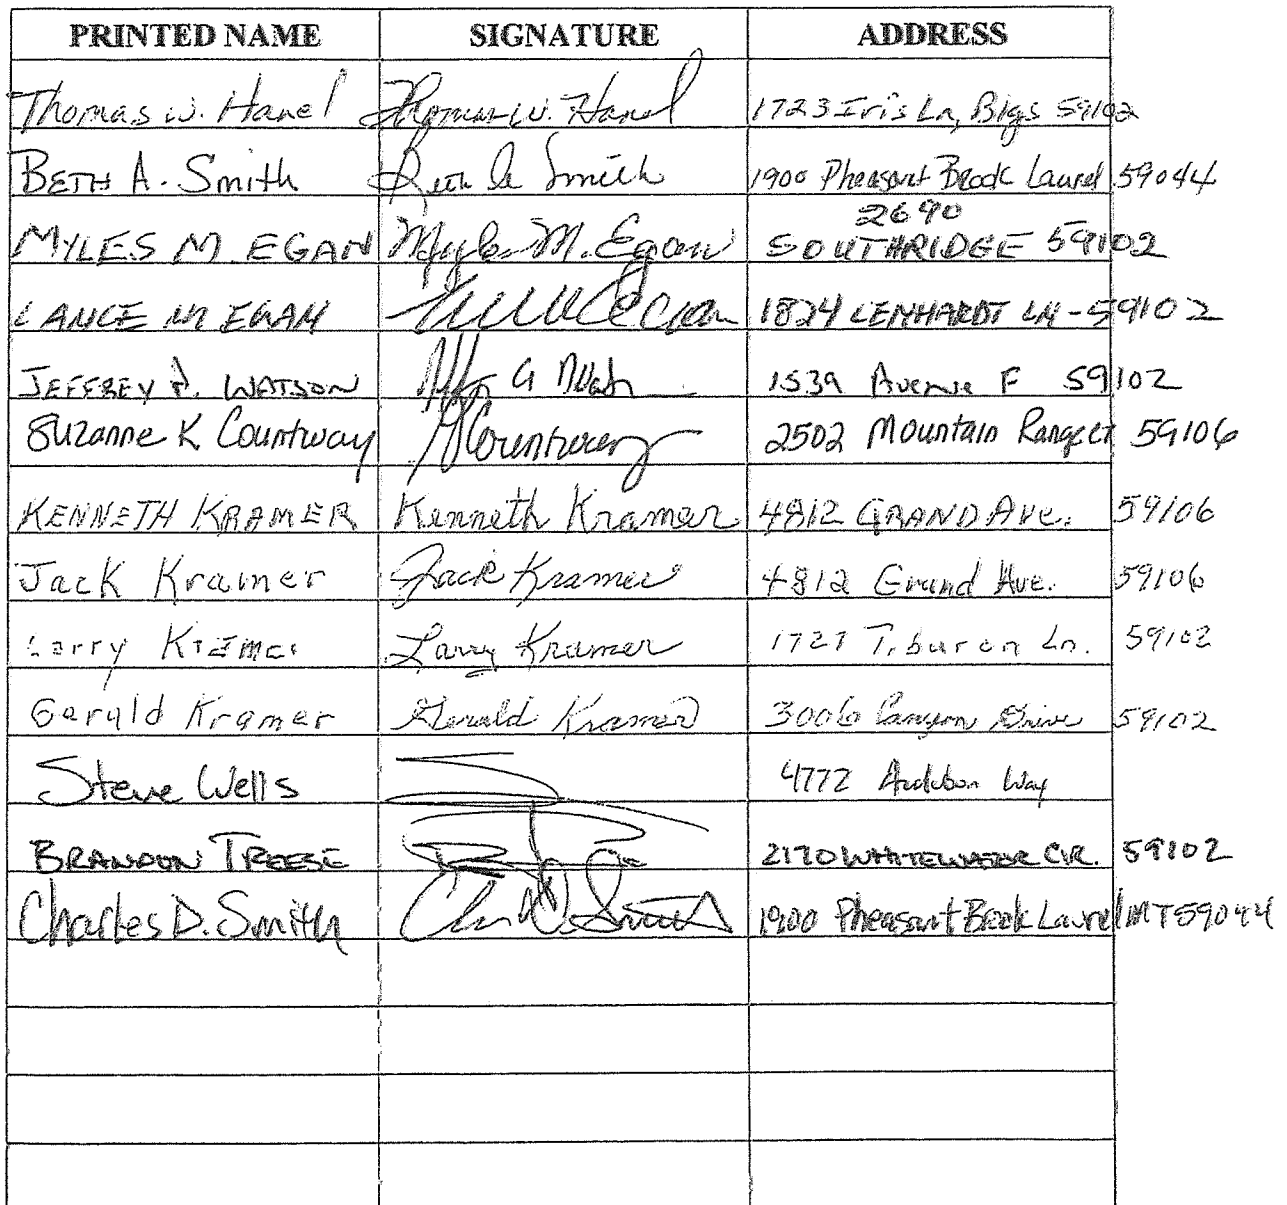 PRINTED NAME SIGNATURE ADDRESS
Thomas W. Hanel Thomas W. Hanel 1723 Iris Ln, Blgs 59102
BETH A. Smith Beth A Smith 1900 Pheasant Brook Laurel 59044
2690
MYLES M EGAN Myles M. Egan SOUTHRIDGE 59102
LANCE M EGAN 1824 LENHARDT LN - 59102
JEFFREY A. WATSON 1539 Avenue F 59102
Suzanne K Countway SCountway 2502 Mountain Range Ct 59106
KENNETH KRAMER Kenneth Kramer 4812 GRAND Ave. 59106
Jack Kramer Jack Kramer 4812 Grand Ave. 59106
Larry Kramer Larry Kramer 1727 Tiburon Ln. 59102
Gerald Kramer Gerald Kramer 3006 Canyon Drive 59102
Steve Wells 4772 Audubon Way
BRANDON TREESE 2170 WHITEWATER CIR. 59102
Charles D. Smith 1900 Pheasant Brook Laurel MT 59044